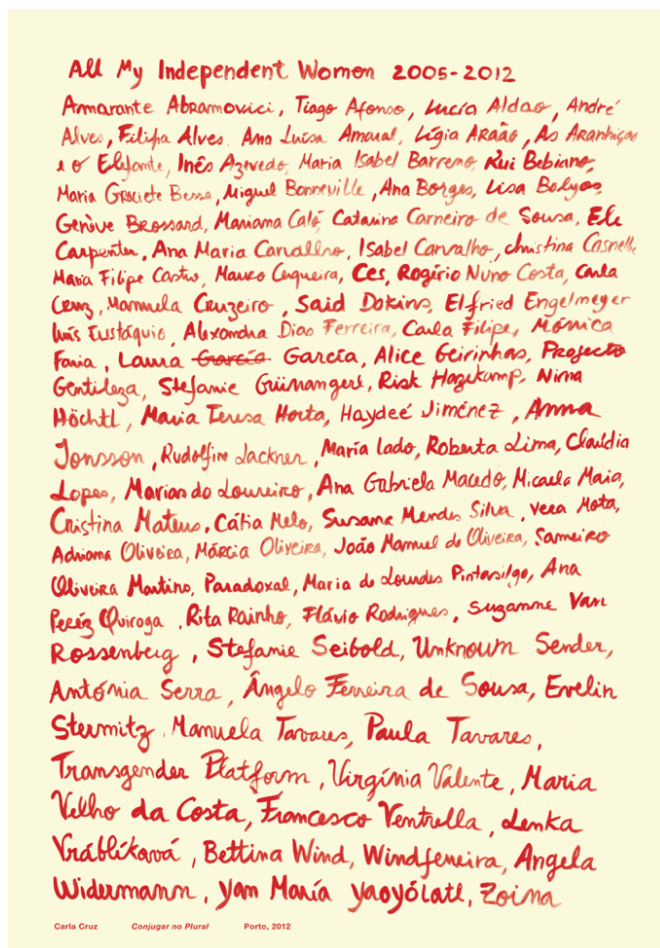 All My Independent Women 2005-2012
Amarante Abramovici, Tiago Afonso, Lucía Aldao, André
Alves, Filipa Alves, Ana Luísa Amaral, Lígia Araão, As Aranhiças
e o Elefante, Inês Azevedo, Maria Isabel Barreno, Rui Bebiano,
Maria Graciete Besse, Miguel Bonneville, Ana Borges, Lisa Bolyos
Genève Brossard, Mariana Caló, Catarina Carneiro de Sousa, Ele
Carpenter, Ana Maria Carvalho, Isabel Carvalho, christina Casnellie
Maria Filipe Castro, Mauro Cerqueira, Ces, Rogério Nuno Costa, Carla
Cruz, Manuela Cruzeiro, Said Dokins, Elfried Engelmeyer
Luís Eustáquio, Alexandra Dias Ferreira, Carla Filipe, Mónica
Faria, Laura García García, Alice Geirinhas, Projecto
Gentileza, Stefanie Grünangerl, Risk Hazekamp, Nina
Höchtl, Maria Teresa Horta, Haydeé Jiménez, Anna
Jonsson, Rudolfine Lackner, María Lado, Roberta Lima, Claúdia
Lopes, Marias do Loureiro, Ana Gabriela Macedo, Micaela Maia,
Cristina Mateus, Cátia Melo, Susana Mendes Silva, Vera Mota,
Adriana Oliveira, Márcia Oliveira, João Manuel de Oliveira, Sameiro
Oliveira Martins, Paradoxal, Maria de Lourdes Pintasilgo, Ana
Peréz Quiroga, Rita Rainho, Flávio Rodrigues, Suzanne Van
Rossenberg, Stefanie Seibold, Unknown Sender,
Antónia Serra, Ângelo Ferreira de Sousa, Evelin
Stermitz, Manuela Tavares, Paula Tavares,
Transgender Platform, Virgínia Valente, Maria
Velho da Costa, Francesco Ventrella, Lenka
Vráblíková, Bettina Wind, Windferreira, Angela
Widermann, Yan María Yaoyólotl, Zoina
Carla Cruz Conjugar no Plural Porto, 2012